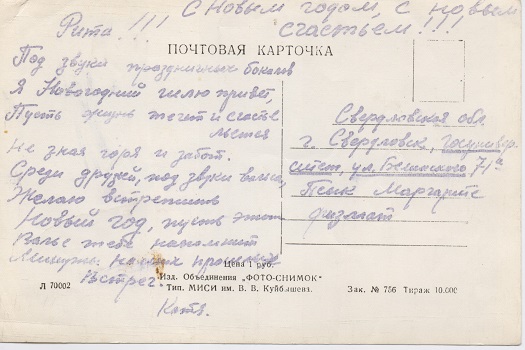 Рита!!! С Новым годом, с новым
счастьем!!!
ПОЧТОВАЯ КАРТОЧКА
Под звуки праздничных бокалов
Я Новогодний шлю привет,
Пусть жизнь течет и счастье
льется
Не зная горя и забот.
Среди друзей, под звуки вальса,
Желаю встретить
Новый год, пусть этот
Вальс тебе напомнит
Минуты наших прошлых
Встреч.
Катя.
Свердловская обл
г. Свердловск, Госунивер
ситет, ул. 71а
Пеик Маргарите
физмат
Цена 1 руб.
Л 70002
Изд. Объединения „ФОТО-СНИМОК"
Тип. МИСИ им. В. В. Куйбышева.
Зак. № 756 Тираж 10.000